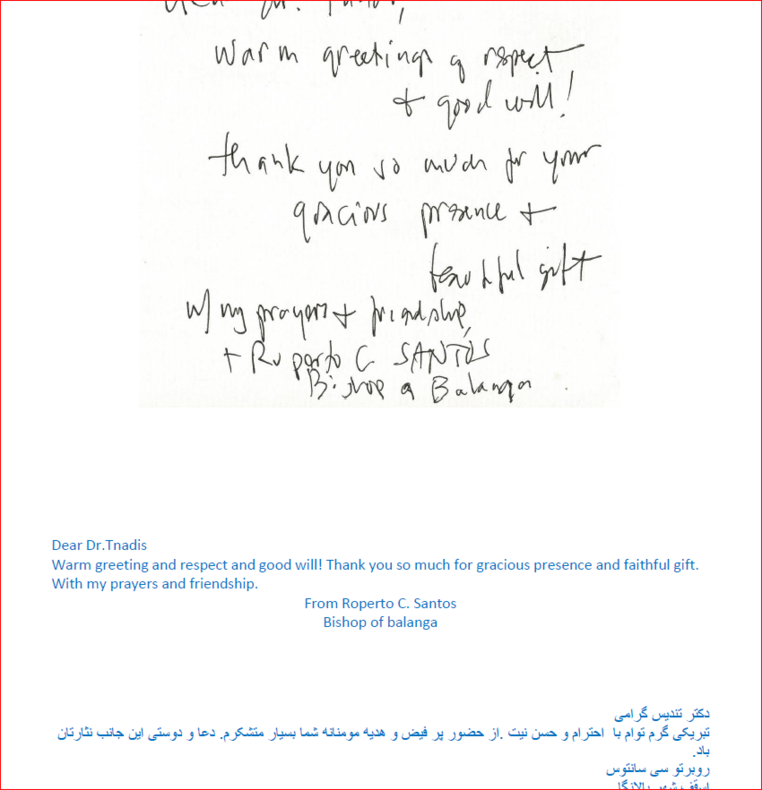 Warm greetings of respect
+ good will!
Thank you so much for your
gracious presence +
beautiful gift
w/ my prayers + friendship,
+ Ruperto C SANTOS
Bishop of Balanga
Dear Dr.Tnadis
Warm greeting and respect and good will! Thank you so much for gracious presence and faithful gift.
With my prayers and friendship.
From Roperto C. Santos
Bishop of balanga
دکتر تندیس گرامی
تبریکی گرم توام با احترام و حسن نیت .از حضور پر فیض و هدیه مومنانه شما بسیار متشکرم. دعا و دوستی این جانب نثارتان
باد.
روبرتو سی سانتوس
اسقف شهر بالانگا